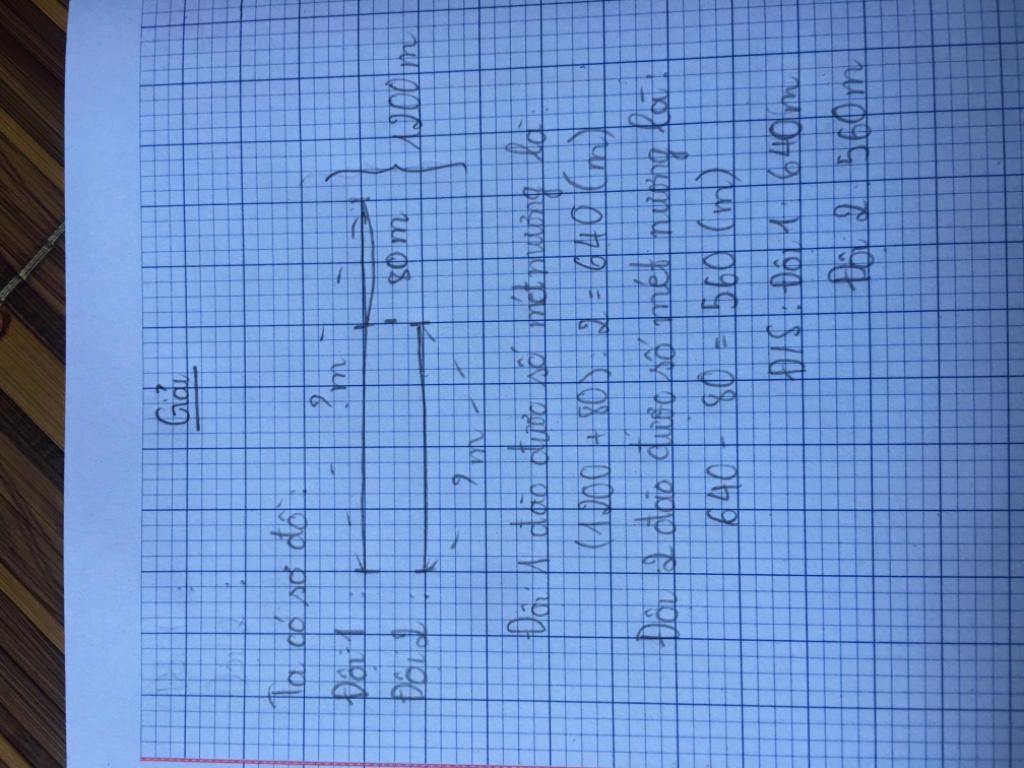 Giải
Ta có sơ đồ:
? m
Đội 1 :
80m } 1200 m
Đội 2 :
? m
Đội 1 đào được số mét mương là
(1200 + 80) : 2 = 640 (m)
Đội 2 đào được số mét mương là :
640 - 80 = 560 (m)
Đ/S : Đội 1 : 640m
Đội 2 : 560m